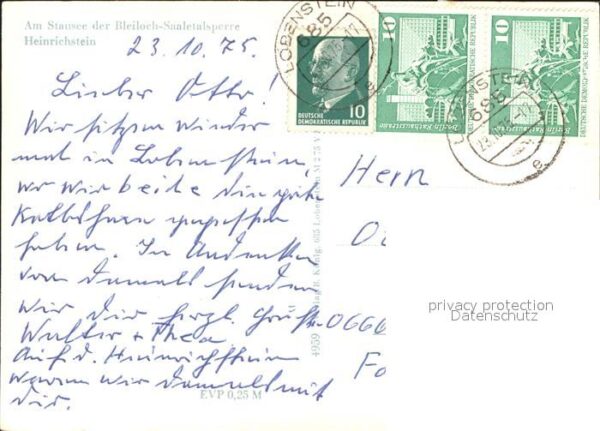 Am Stausee der Bleiloch-Saaletalsperre
Heinrichstein
23.10.75.
Lieber Otto!
Wir sitzen wieder
mal in Lobenstein,
wo wir beide die gute
Kalbshaxe gegessen
haben. In Andenken
von damals senden
wir dir herzl. Grüße
Walter + Thea
Auf d. Heinrichstein
waren wir damals mit
dir.
EVP 0,25 M
LOBENSTEIN
685
e
10
DEUTSCHE
DEMOKRATISCHE REPUBLIK
10
Berlin Rathausstraße
DEUTSCHE DEMOKRATISCHE REPUBLIK
10
Berlin Rathausstraße
DEUTSCHE DEMOKRATISCHE REPUBLIK
LOBENSTEIN
685
e
Herrn
O
066
Fo
privacy protection
Datenschutz